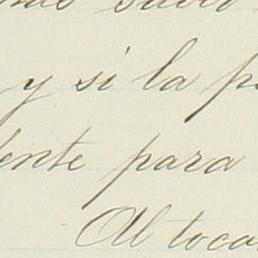 y si la p
ente para
Al toca